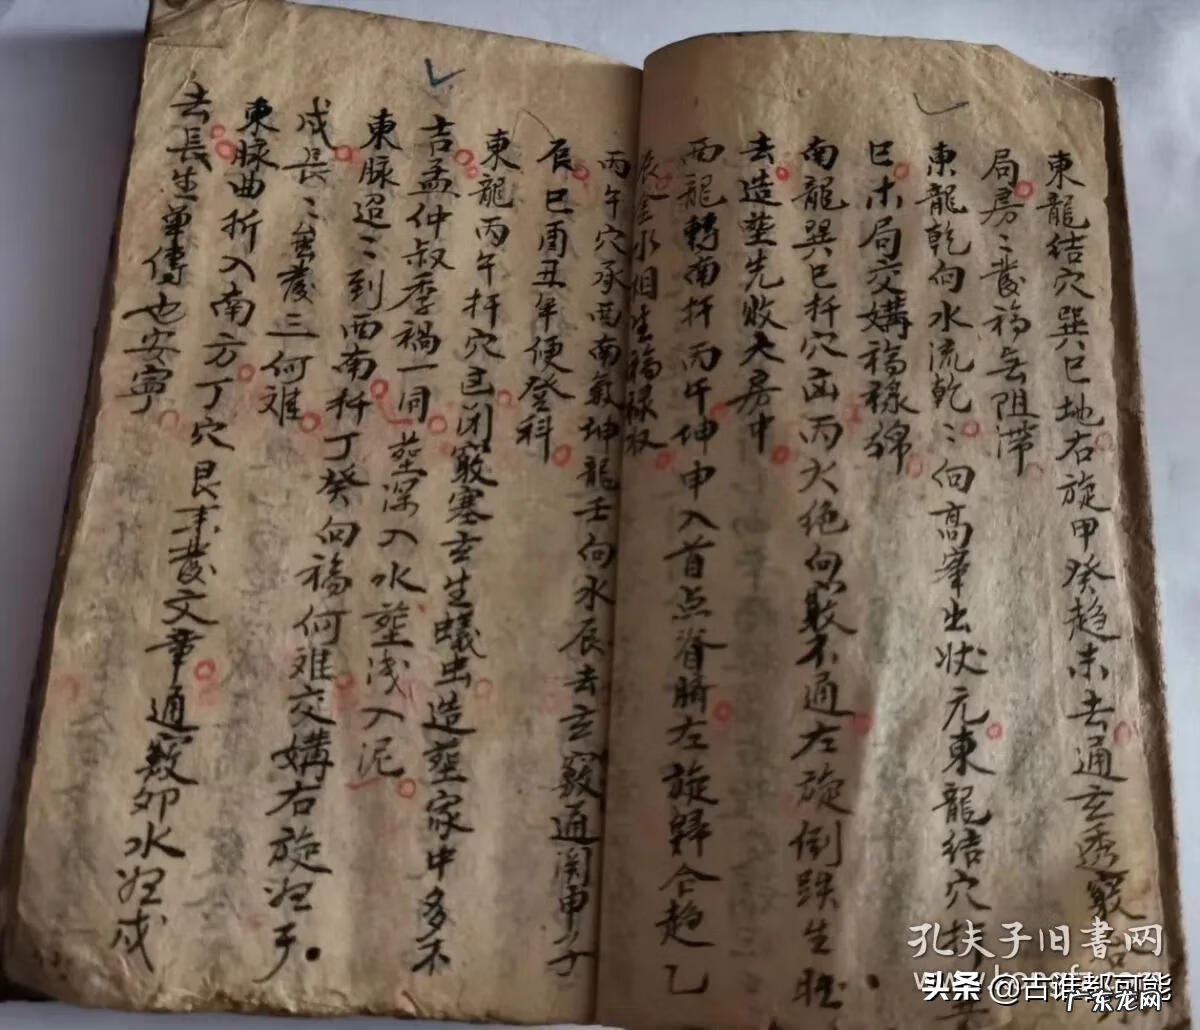 東龍結穴巽巳地右旋甲癸趋未去通玄透竅
局房〻發福無阻滞
東龍乾向水流乾〻向高峯出状元東龍結穴
巳未局交媾福禄綿
南龍巽巳扦穴丙火绝向竅不通左旋倒跌生旺
去造塟先敗大房中
西龍轉南扦丙午坤申入首点脊臍左旋歸合趋乙
辰金水相生福禄
丙午穴承西南氣坤龍壬向水辰去玄竅通関申子
辰巳酉丑年便登科
東龍丙午扦穴閉竅塞玄生蟻虫造塟家中多不
吉孟仲叔季禍一同塟深入水塟浅入泥
東脉迢〻到西南扦丁癸向福何难交媾右旋归于
戌長〻發三何难
東脉曲折入南方丁穴艮未發文章通竅卯水归戌
去長生單傳也安寧
孔夫子旧書网
头条 @古谁都可能
广东龙网